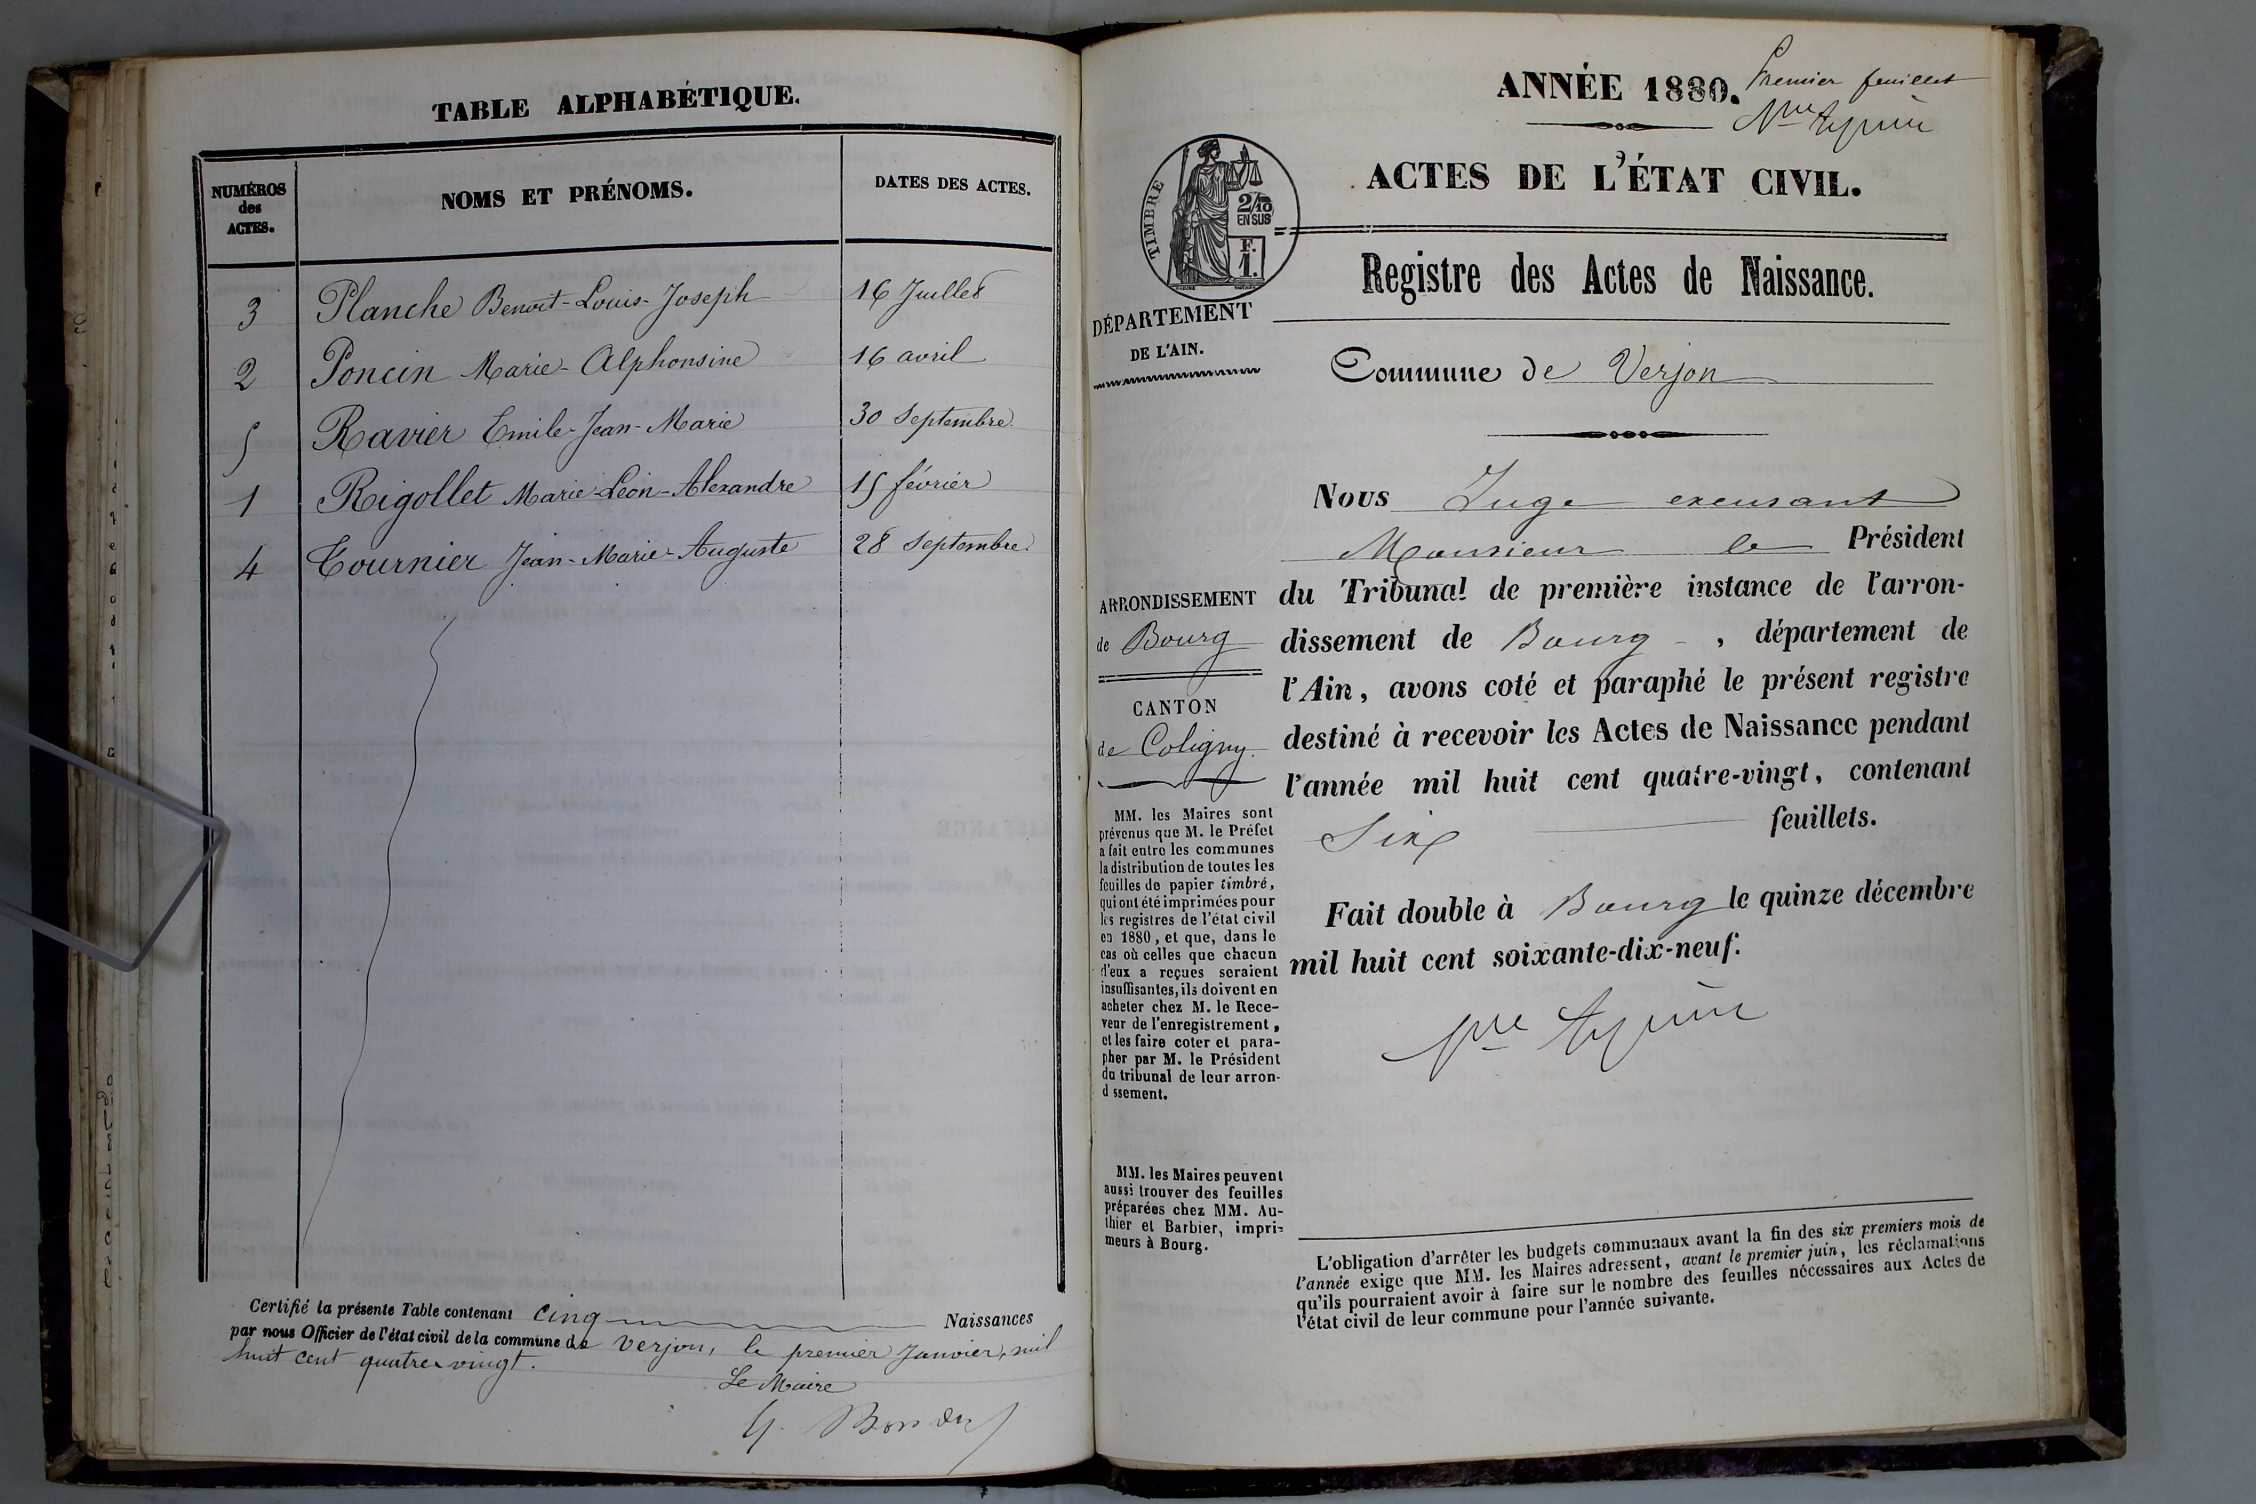 TABLE ALPHABÉTIQUE.
NUMÉROS
des
ACTES.
NOMS ET PRÉNOMS.
DATES DES ACTES.
3 Planche Benoit-Louis-Joseph 16 Juillet
2 Poncin Marie-Alphonsine 16 avril
5 Ravier Emile-Jean-Marie 30 Septembre
1 Rigollet Marie-Léon-Alexandre 15 février
4 Tournier Jean-Marie-Auguste 28 Septembre
Certifié la présente Table contenant cinq Naissances
par nous Officier de l'état civil de la commune de Verjon, le premier Janvier, mil
huit cent quatre vingt.
Le Maire
ANNÉE 1880.
Premier feuillet
ACTES DE L'ÉTAT CIVIL.
TIMBRE
2/10
EN SUS
F.
1.
Registre des Actes de Naissance.
DÉPARTEMENT
DE L'AIN.
Commune de Verjon
Nous Juge excusant
Monsieur le Président
du Tribunal de première instance de l'arron-
dissement de Bourg, département de
l'Ain, avons coté et paraphé le présent registre
destiné à recevoir les Actes de Naissance pendant
l'année mil huit cent quatre-vingt, contenant
Six feuillets.
Fait double à Bourg le quinze décembre
mil huit cent soixante-dix-neuf.
ARRONDISSEMENT
de Bourg
CANTON
de Coligny
MM. les Maires sont
prévenus que M. le Préfet
a fait entre les communes
la distribution de toutes les
feuilles de papier timbré,
qui ont été imprimées pour
les registres de l'état civil
en 1880, et que, dans le
cas où celles que chacun
d'eux a reçues seraient
insuffisantes, ils doivent en
acheter chez M. le Rece-
veur de l'enregistrement,
et les faire coter et para-
pher par M. le Président
du tribunal de leur arron-
d ssement.
MM. les Maires peuvent
aussi trouver des feuilles
préparées chez MM. Au-
thier et Barbier, impri-
meurs à Bourg.
L'obligation d'arrêter les budgets communaux avant la fin des six premiers mois de
l'année exige que MM. les Maires adressent, avant le premier juin, les réclamations
qu'ils pourraient avoir à faire sur le nombre des feuilles nécessaires aux Actes de
l'état civil de leur commune pour l'année suivante.